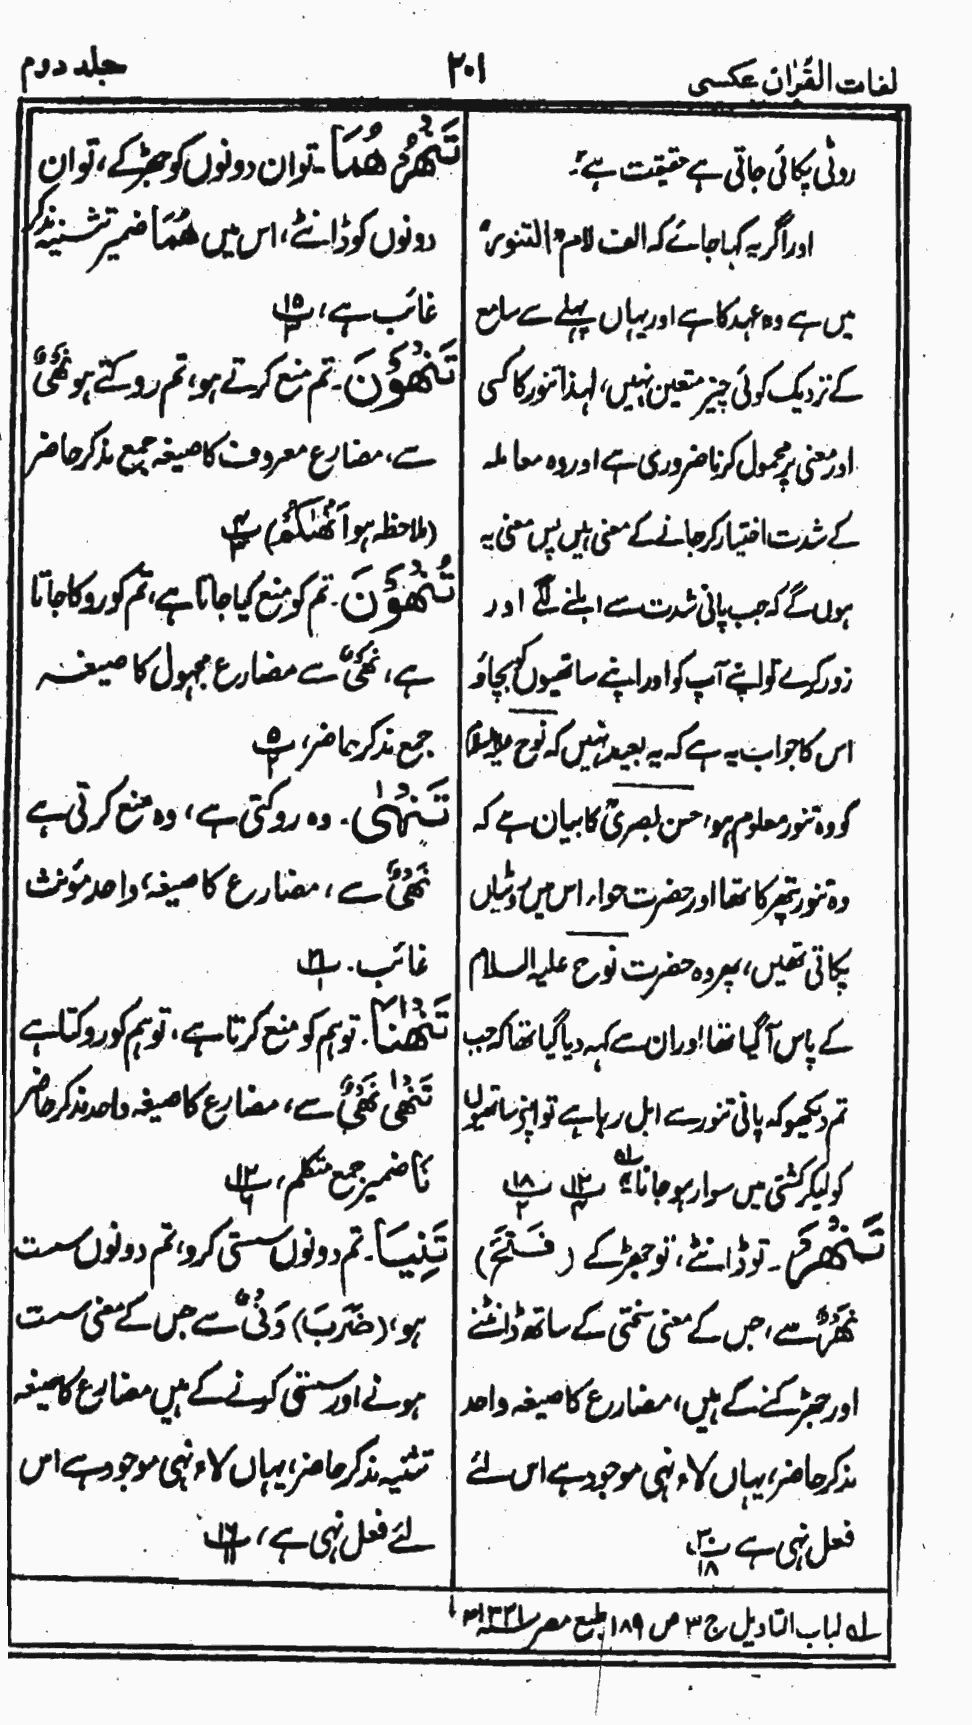 لغات القرآن عکسی
۲۰۱
جلد دوم
روٹی پکائی جاتی ہے حقیقت ہے۔
اور اگر یہ کہا جائے کہ الف لام "التنور"
میں ہے وہ عہد کا ہے اور یہاں پہلے سے سامع
کے نزدیک کوئی چیز متعین نہیں، لہذا تنور کا کسی
اور معنی پر محمول کرنا ضروری ہے اور وہ معاملہ
کے شدت اختیار کر جانے کے معنی ہیں پس معنی یہ
ہوں گے کہ جب پانی شدت سے ابلنے لگے اور
زور کرے تو اپنے آپ کو اور اپنے ساتھیوں کو بچاؤ
اس کا جواب یہ ہے کہ یہ بعید نہیں کہ نوح علیہ السلام
کو وہ تنور معلوم ہو، حسن بصریؒ کا بیان ہے کہ
وہ تنور پتھر کا تھا اور حضرت حواء اس میں روٹیاں
پکاتی تھیں، پھر وہ حضرت نوح علیہ السلام
کے پاس آ گیا تھا اور ان سے کہہ دیا گیا تھا کہ جب
تم دیکھو کہ پانی تنور سے ابل رہا ہے تو اپنے ساتھیوں
کو لیکر کشتی میں سوار ہو جانا۔ لہ ۱۲/۴ ۱۸/۲
تَنْهَرْ۔ تو ڈانٹے، تو جھڑکے (فَتَحَ)
نَهْرٌ سے، جس کے معنی سختی کے ساتھ ڈانٹنے
اور جھڑکنے کے ہیں، مضارع کا صیغہ واحد
مذکر حاضر، یہاں لاء نہی موجود ہے اس لئے
فعل نہی ہے ۳۰/۱۸
تَنْهَرْهُمَا۔ تو ان دونوں کو جھڑکے، تو ان
دونوں کو ڈانٹے، اس میں هُمَا ضمیر تثنیہ مذکر
غائب ہے، ۱۵/۳
تَنْهَوْنَ۔ تم منع کرتے ہو، تم روکتے ہو نَهْیٌ
سے، مضارع معروف کا صیغہ جمع مذکر حاضر
(ملاحظہ ہو اَنْهٰىكُمْ) ۴/۳
تُنْهَوْنَ۔ تم کو منع کیا جاتا ہے، تم کو روکا جاتا
ہے، نَهْیٌ سے مضارع مجہول کا صیغہ
جمع مذکر حاضر، ۵/۲
تَنْهٰى۔ وہ روکتی ہے، وہ منع کرتی ہے
نَهْیٌ سے، مضارع کا صیغہ، واحد مؤنث
غائب۔ ۲۱/۱
تَنْهٰنَا۔ تو ہم کو منع کرتا ہے، تو ہم کو روکتا ہے
تَنْهٰى نَهْیٌ سے، مضارع کا صیغہ واحد مذکر حاضر
نَا ضمیر جمع متکلم، ۱۲/۶
تَنِيَا۔ تم دونوں سستی کرو، تم دونوں سست
ہو، (ضَرَبَ) وَنْیٌ سے جس کے معنی سست
ہونے اور سستی کرنے کے ہیں مضارع کا صیغہ
تثنیہ مذکر حاضر، یہاں لاء نہی موجود ہے اس
لئے فعل نہی ہے، ۱۶/۱۱
لہ لباب التاویل ج ۳ ص ۱۸۹ طبع مصر